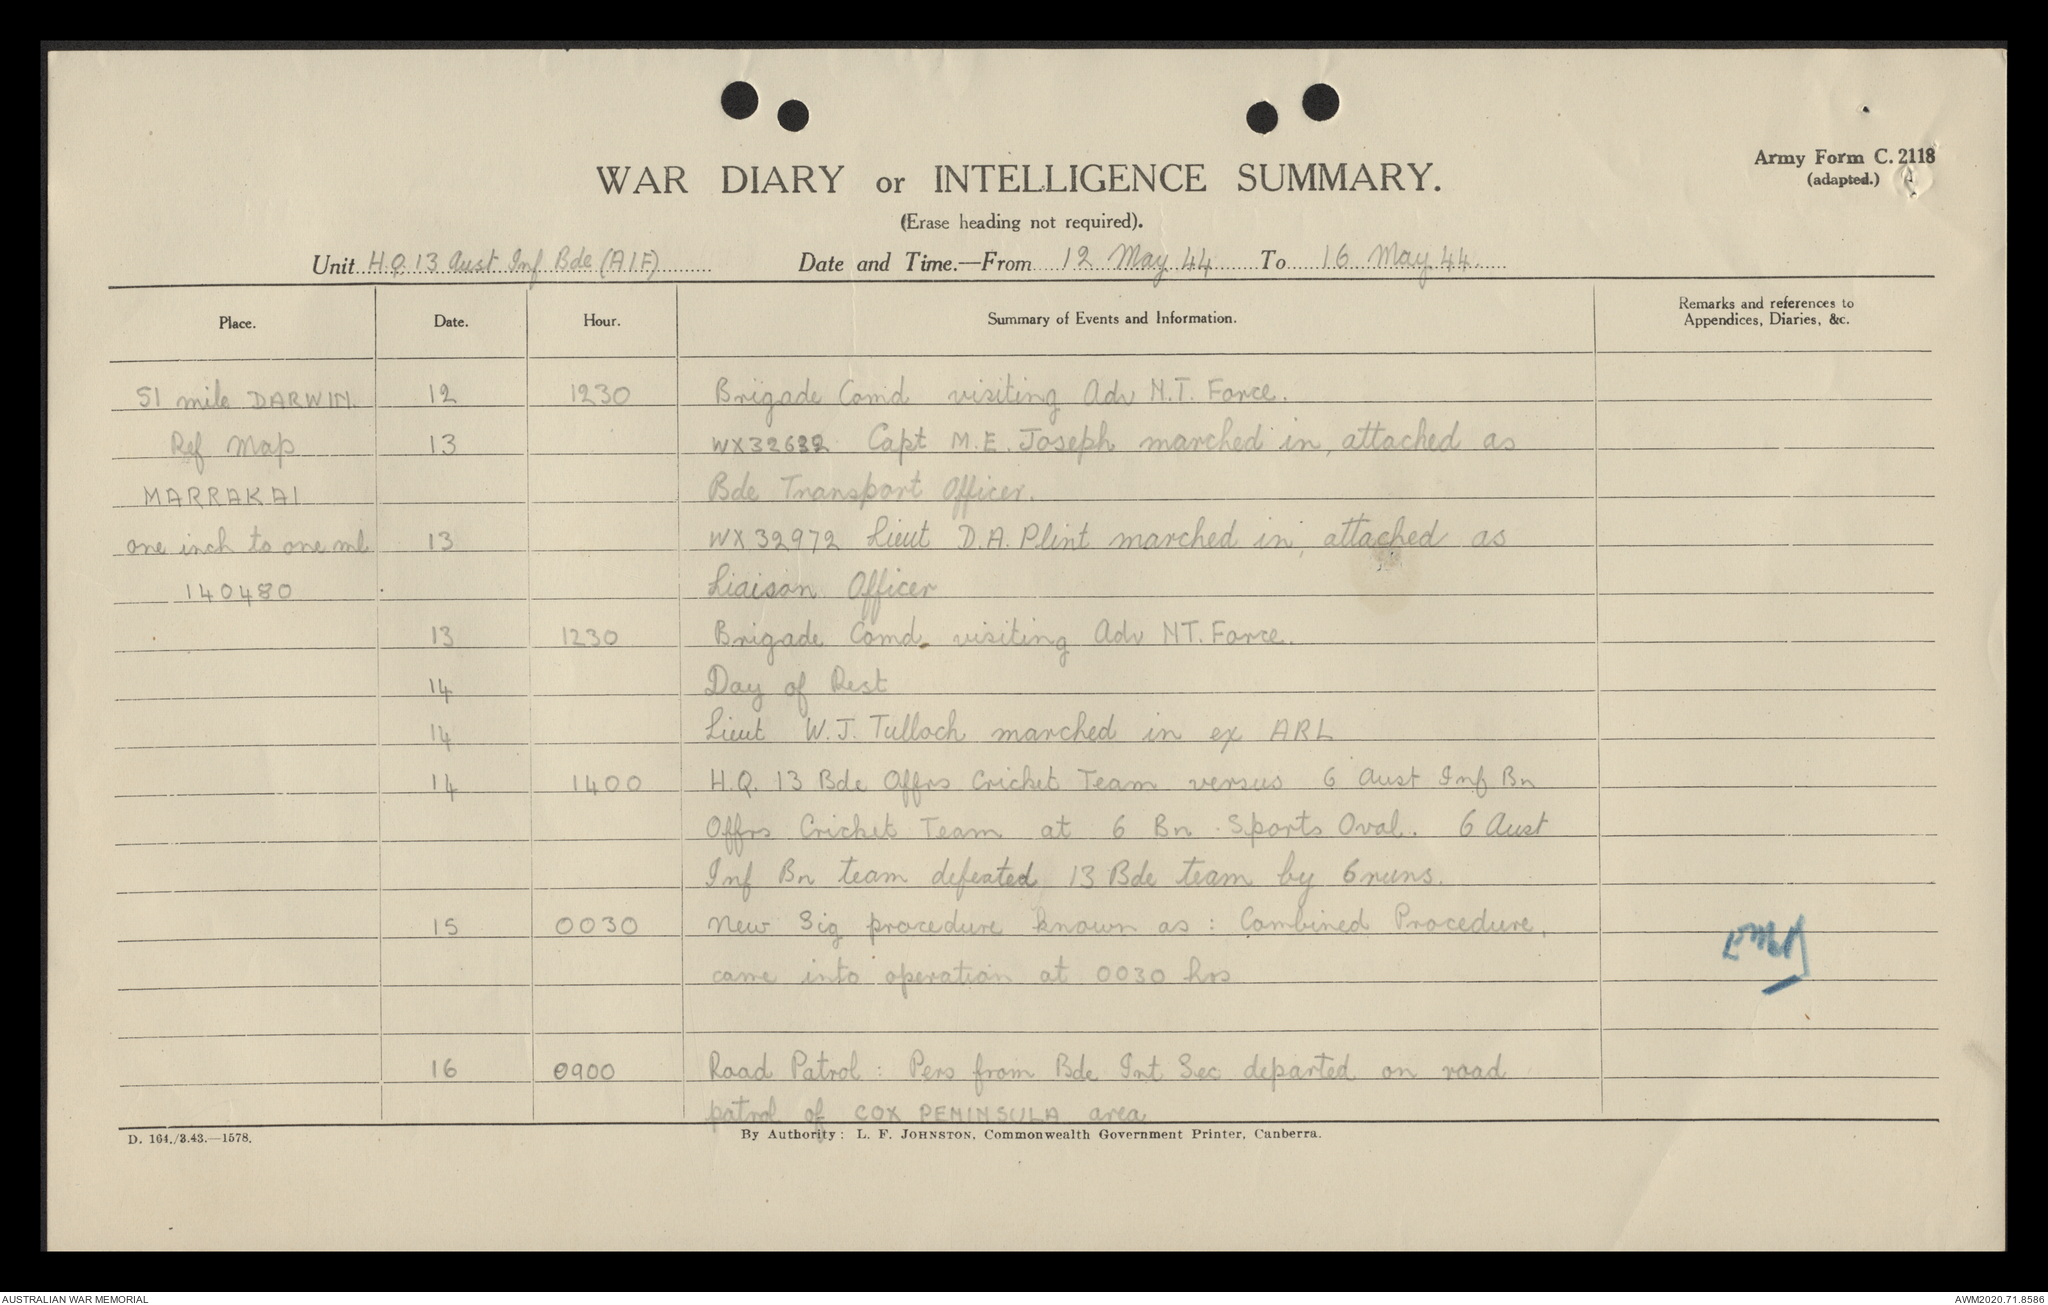 Army Form C. 2118
(adapted.)
WAR DIARY or INTELLIGENCE SUMMARY.
(Erase heading not required).
Unit H.Q 13 Aust Inf Bde (AIF) Date and Time.—From 12 May 44 To 16 May 44
Place. Date. Hour. Summary of Events and Information. Remarks and references to
Appendices, Diaries, &c.
51 mile DARWIN. 12 1230 Brigade Comd visiting Adv N.T. Force.
Ref Map 13 WX32632 Capt M.E. Joseph marched in, attached as
MARRAKAI Bde Transport Officer.
one inch to one ml 13 WX32972 Lieut D.A. Plint marched in, attached as
140480 Liaison Officer
13 1230 Brigade Comd visiting Adv NT. Force.
14 Day of Rest
14 Lieut W.J. Tulloch marched in ex ARL
14 1400 H.Q. 13 Bde Offrs Cricket Team versus 6 Aust Inf Bn
Offrs Cricket Team at 6 Bn Sports Oval. 6 Aust
Inf Bn team defeated 13 Bde team by 6 runs.
15 0030 New Sig procedure known as: Combined Procedure,
came into operation at 0030 hrs
16 0900 Road Patrol: Pers from Bde Int Sec departed on road
patrol of COX PENINSULA area
D. 164./3.43.—1578. By Authority: L. F. JOHNSTON, Commonwealth Government Printer, Canberra.
AUSTRALIAN WAR MEMORIAL AWM2020.71.8586